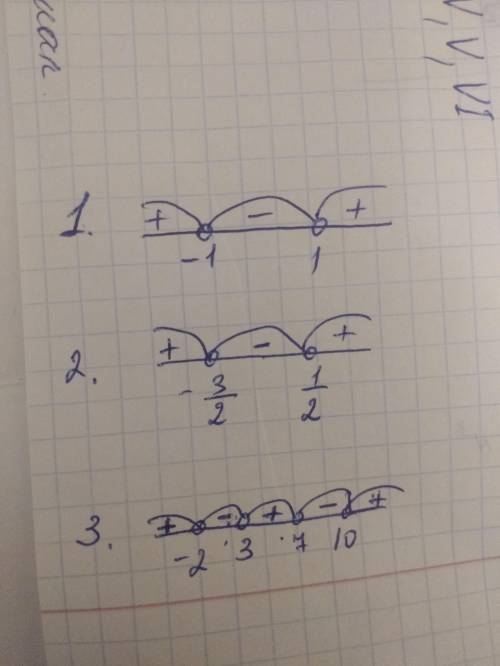 V, V, VI
1.
+ - +
-1 1
2.
+ - +
-3/2 1/2
3.
+ - + - +
-2 3 7 10